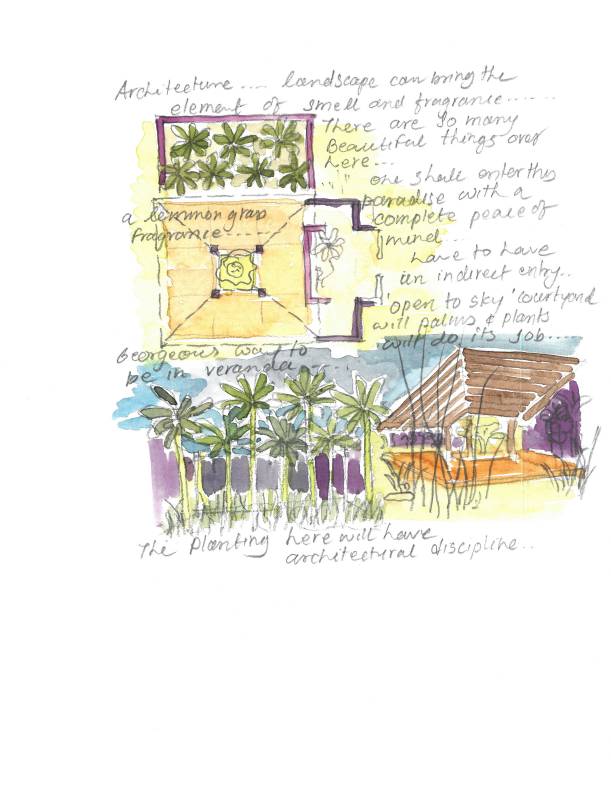 Architecture.... landscape can bring the
element of smell and fragrance......
There are so many
Beautiful things over
here...
one shall enter this
paradise with a
complete peace of
mind...
have to have
an indirect entry..
'open to sky' courtyard
will palms & plants
will do its job....
a lemmon grass
fragrance......
Georgeous way to
be in veranda.....
The Planting here will have
architectural discipline..